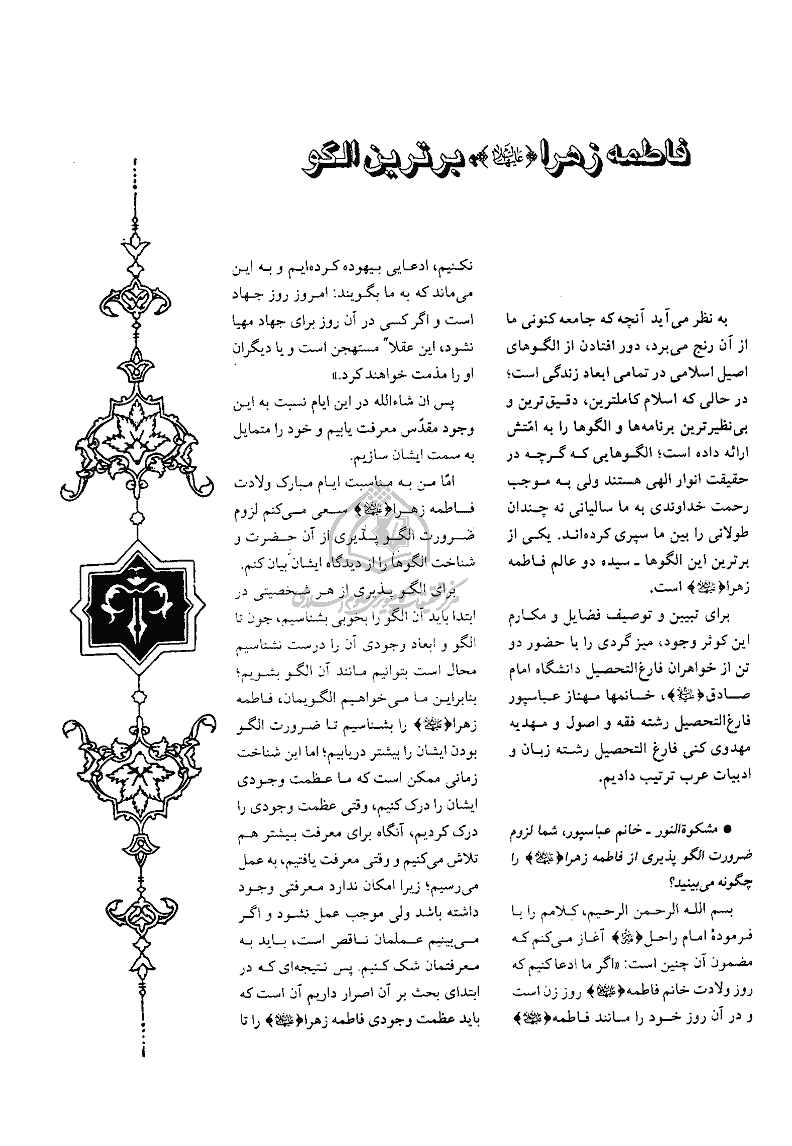 فاطمه زهرا﴿علیهاالسلام﴾، برترین الگو
به نظر می‌آید آنچه که جامعه کنونی ما
از آن رنج می‌برد، دور افتادن از الگوهای
اصیل اسلامی در تمامی ابعاد زندگی است؛
در حالی که اسلام کاملترین، دقیق‌ترین و
بی‌نظیرترین برنامه‌ها و الگوها را به امّتش
ارائه داده است؛ الگوهایی که گرچه در
حقیقت انوار الهی هستند ولی به موجب
رحمت خداوندی به ما سالیانی نه چندان
طولانی را بین ما سپری کرده‌اند. یکی از
برترین این الگوها ـ سیده دو عالم فاطمه
زهرا﴿علیهاالسلام﴾ است.
برای تبیین و توصیف فضایل و مکارم
این کوثر وجود، میزگردی را با حضور دو
تن از خواهران فارغ‌التحصیل دانشگاه امام
صادق﴿علیه‌السلام﴾، خانمها مهناز عباسپور
فارغ‌التحصیل رشته فقه و اصول و مهدیه
مهدوی کنی فارغ التحصیل رشته زبان و
ادبیات عرب ترتیب دادیم.
● مشکوةالنور ـ خانم عباسپور، شما لزوم
ضرورت الگو پذیری از فاطمه زهرا﴿علیهاالسلام﴾ را
چگونه می‌بینید؟
بسم الله الرحمن الرحیم، کلامم را با
فرمودهٔ امام راحل﴿ره﴾ آغاز می‌کنم که
مضمون آن چنین است: «اگر ما ادعا کنیم که
روز ولادت خانم فاطمه﴿علیهاالسلام﴾ روز زن است
و در آن روز خود را مانند فاطمه﴿علیهاالسلام﴾
نکنیم، ادعایی بیهوده کرده‌ایم و به این
می‌ماند که به ما بگویند: امروز روز جهاد
است و اگر کسی در آن روز برای جهاد مهیا
نشود، این عقلاً مستهجن است و یا دیگران
او را مذمت خواهند کرد.»
پس ان شاءالله در این ایام نسبت به این
وجود مقدّس معرفت یابیم و خود را متمایل
به سمت ایشان سازیم.
امّا من به مناسبت ایام مبارک ولادت
فاطمه زهرا﴿علیهاالسلام﴾ سعی می‌کنم لزوم
ضرورت الگو پذیری از آن حضرت و
شناخت الگوها را از دیدگاه ایشان بیان کنم.
برای الگو پذیری از هر شخصیتی در
ابتدا باید آن الگو را بخوبی بشناسیم، چون تا
الگو و ابعاد وجودی آن را درست نشناسیم
محال است بتوانیم مانند آن الگو بشویم؛
بنابراین ما می‌خواهیم الگویمان، فاطمه
زهرا﴿علیهاالسلام﴾ را بشناسیم تا ضرورت الگو
بودن ایشان را بیشتر دریابیم؛ اما این شناخت
زمانی ممکن است که ما عظمت وجودی
ایشان را درک کنیم، وقتی عظمت وجودی را
درک کردیم، آنگاه برای معرفت بیشتر هم
تلاش می‌کنیم و وقتی معرفت یافتیم، به عمل
می‌رسیم؛ زیرا امکان ندارد معرفتی وجود
داشته باشد ولی موجب عمل نشود و اگر
می‌بینیم عملمان ناقص است، باید به
معرفتمان شک کنیم. پس نتیجه‌ای که در
ابتدای بحث بر آن اصرار داریم آن است که
باید عظمت وجودی فاطمه زهرا﴿علیهاالسلام﴾ را تا